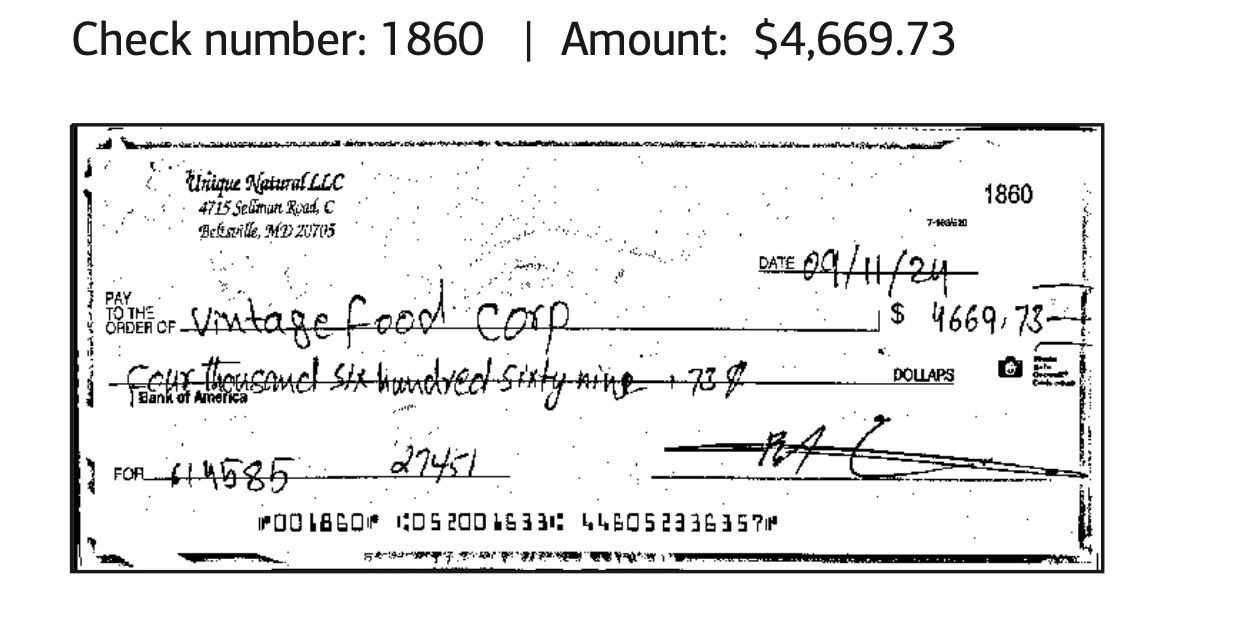 Check number: 1860 | Amount: $4,669.73
Unique Natural LLC
4715 Sellman Road, C
Beltsville, MD 20705
1860
DATE 09/11/24
PAY
TO THE
ORDER OF Vintage Food Corp $ 4669.73
Four thousand six hundred sixty nine + 73 ¢ DOLLARS
Bank of America
FOR 614585 27451
⑈001860⑈ ⑆052001633⑆ 446052336357⑈